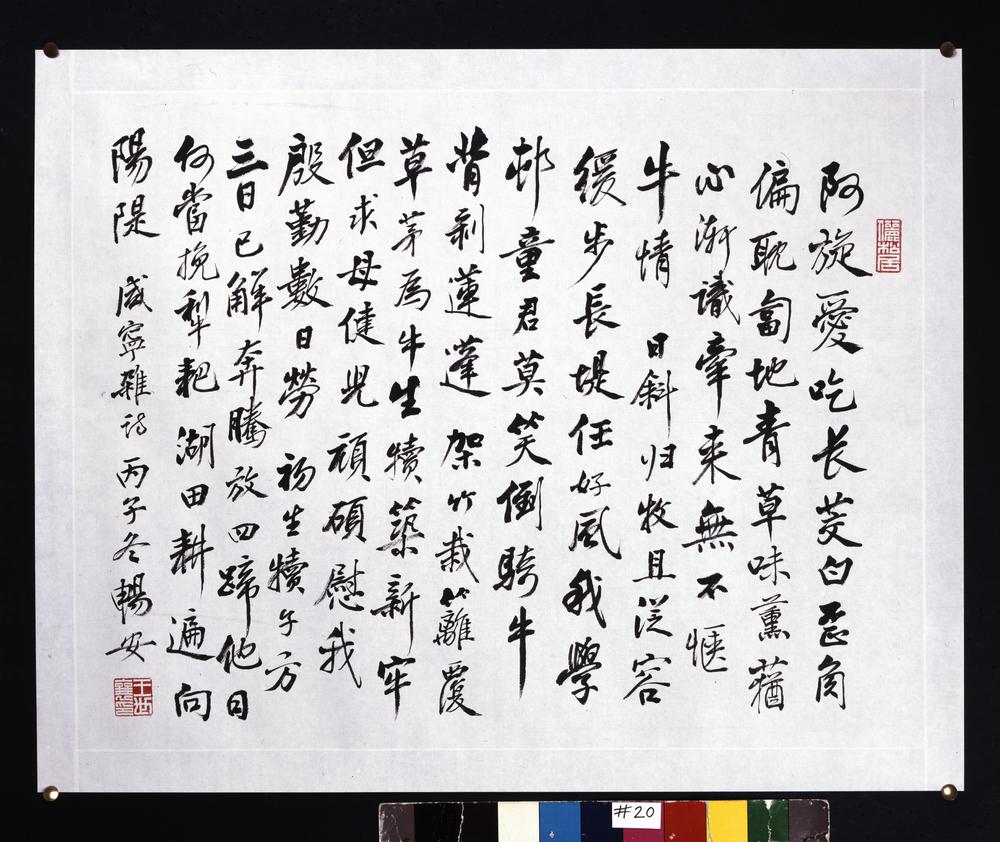 儷松居
阿旋愛吃长茭白歪角
偏耽匐地青草味薰蕕
心漸識牽来無不愜
牛情 日斜归牧且從容
緩步長堤任好風我學
邨童君莫笑倒騎牛
背剥蓮蓬 架竹栽籬覆
草茅為牛生犢築新牢
但求母健児頑碩慰我
殷勤數日勞 初生犢子方
三日已解奔騰放四蹄他日
何當挽犁耙湖田耕遍向
陽隄 咸寧雜诗 丙子冬暢安
王世襄璽
#20